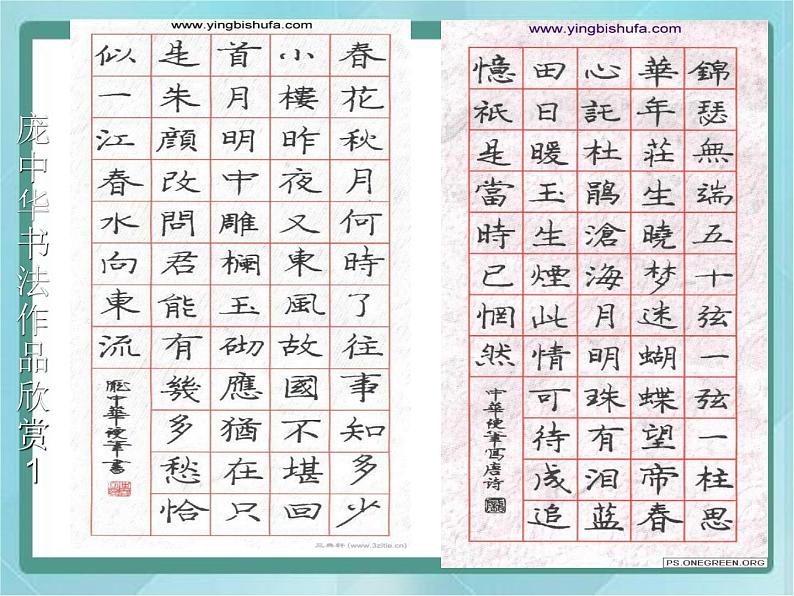 庞中华书法作品欣赏1
www.yingbishufa.com
春花秋月何時了往事知多少
小樓昨夜又東風故國不堪回
首月明中雕欄玉砌應猶在只
是朱顏改問君能有幾多愁恰
似一江春水向東流
龐中華硬筆書
三典轩(www.3zitie.cn)
www.yingbishufa.com
錦瑟無端五十弦一弦一柱思
華年莊生曉梦迷蝴蝶望帝春
心託杜鵑滄海月明珠有泪蓝
田日暖玉生煙此情可待成追
憶祇是當時已惘然
中華硬筆寫唐詩
PS.ONEGREEN.ORG